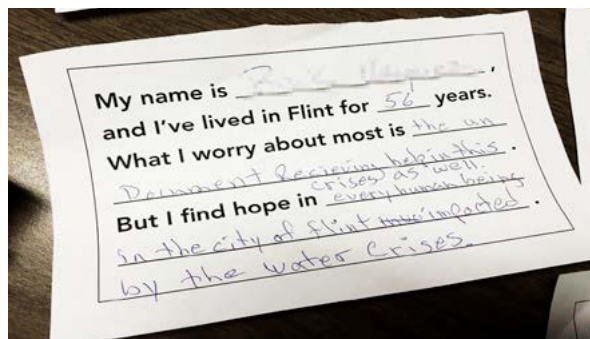 My name is ,
and I've lived in Flint for 56 years.
What I worry about most is the un
Document Recieving help in this .
crises as well.
But I find hope in every human being
in the city of flint impacted .
by the water Crises.